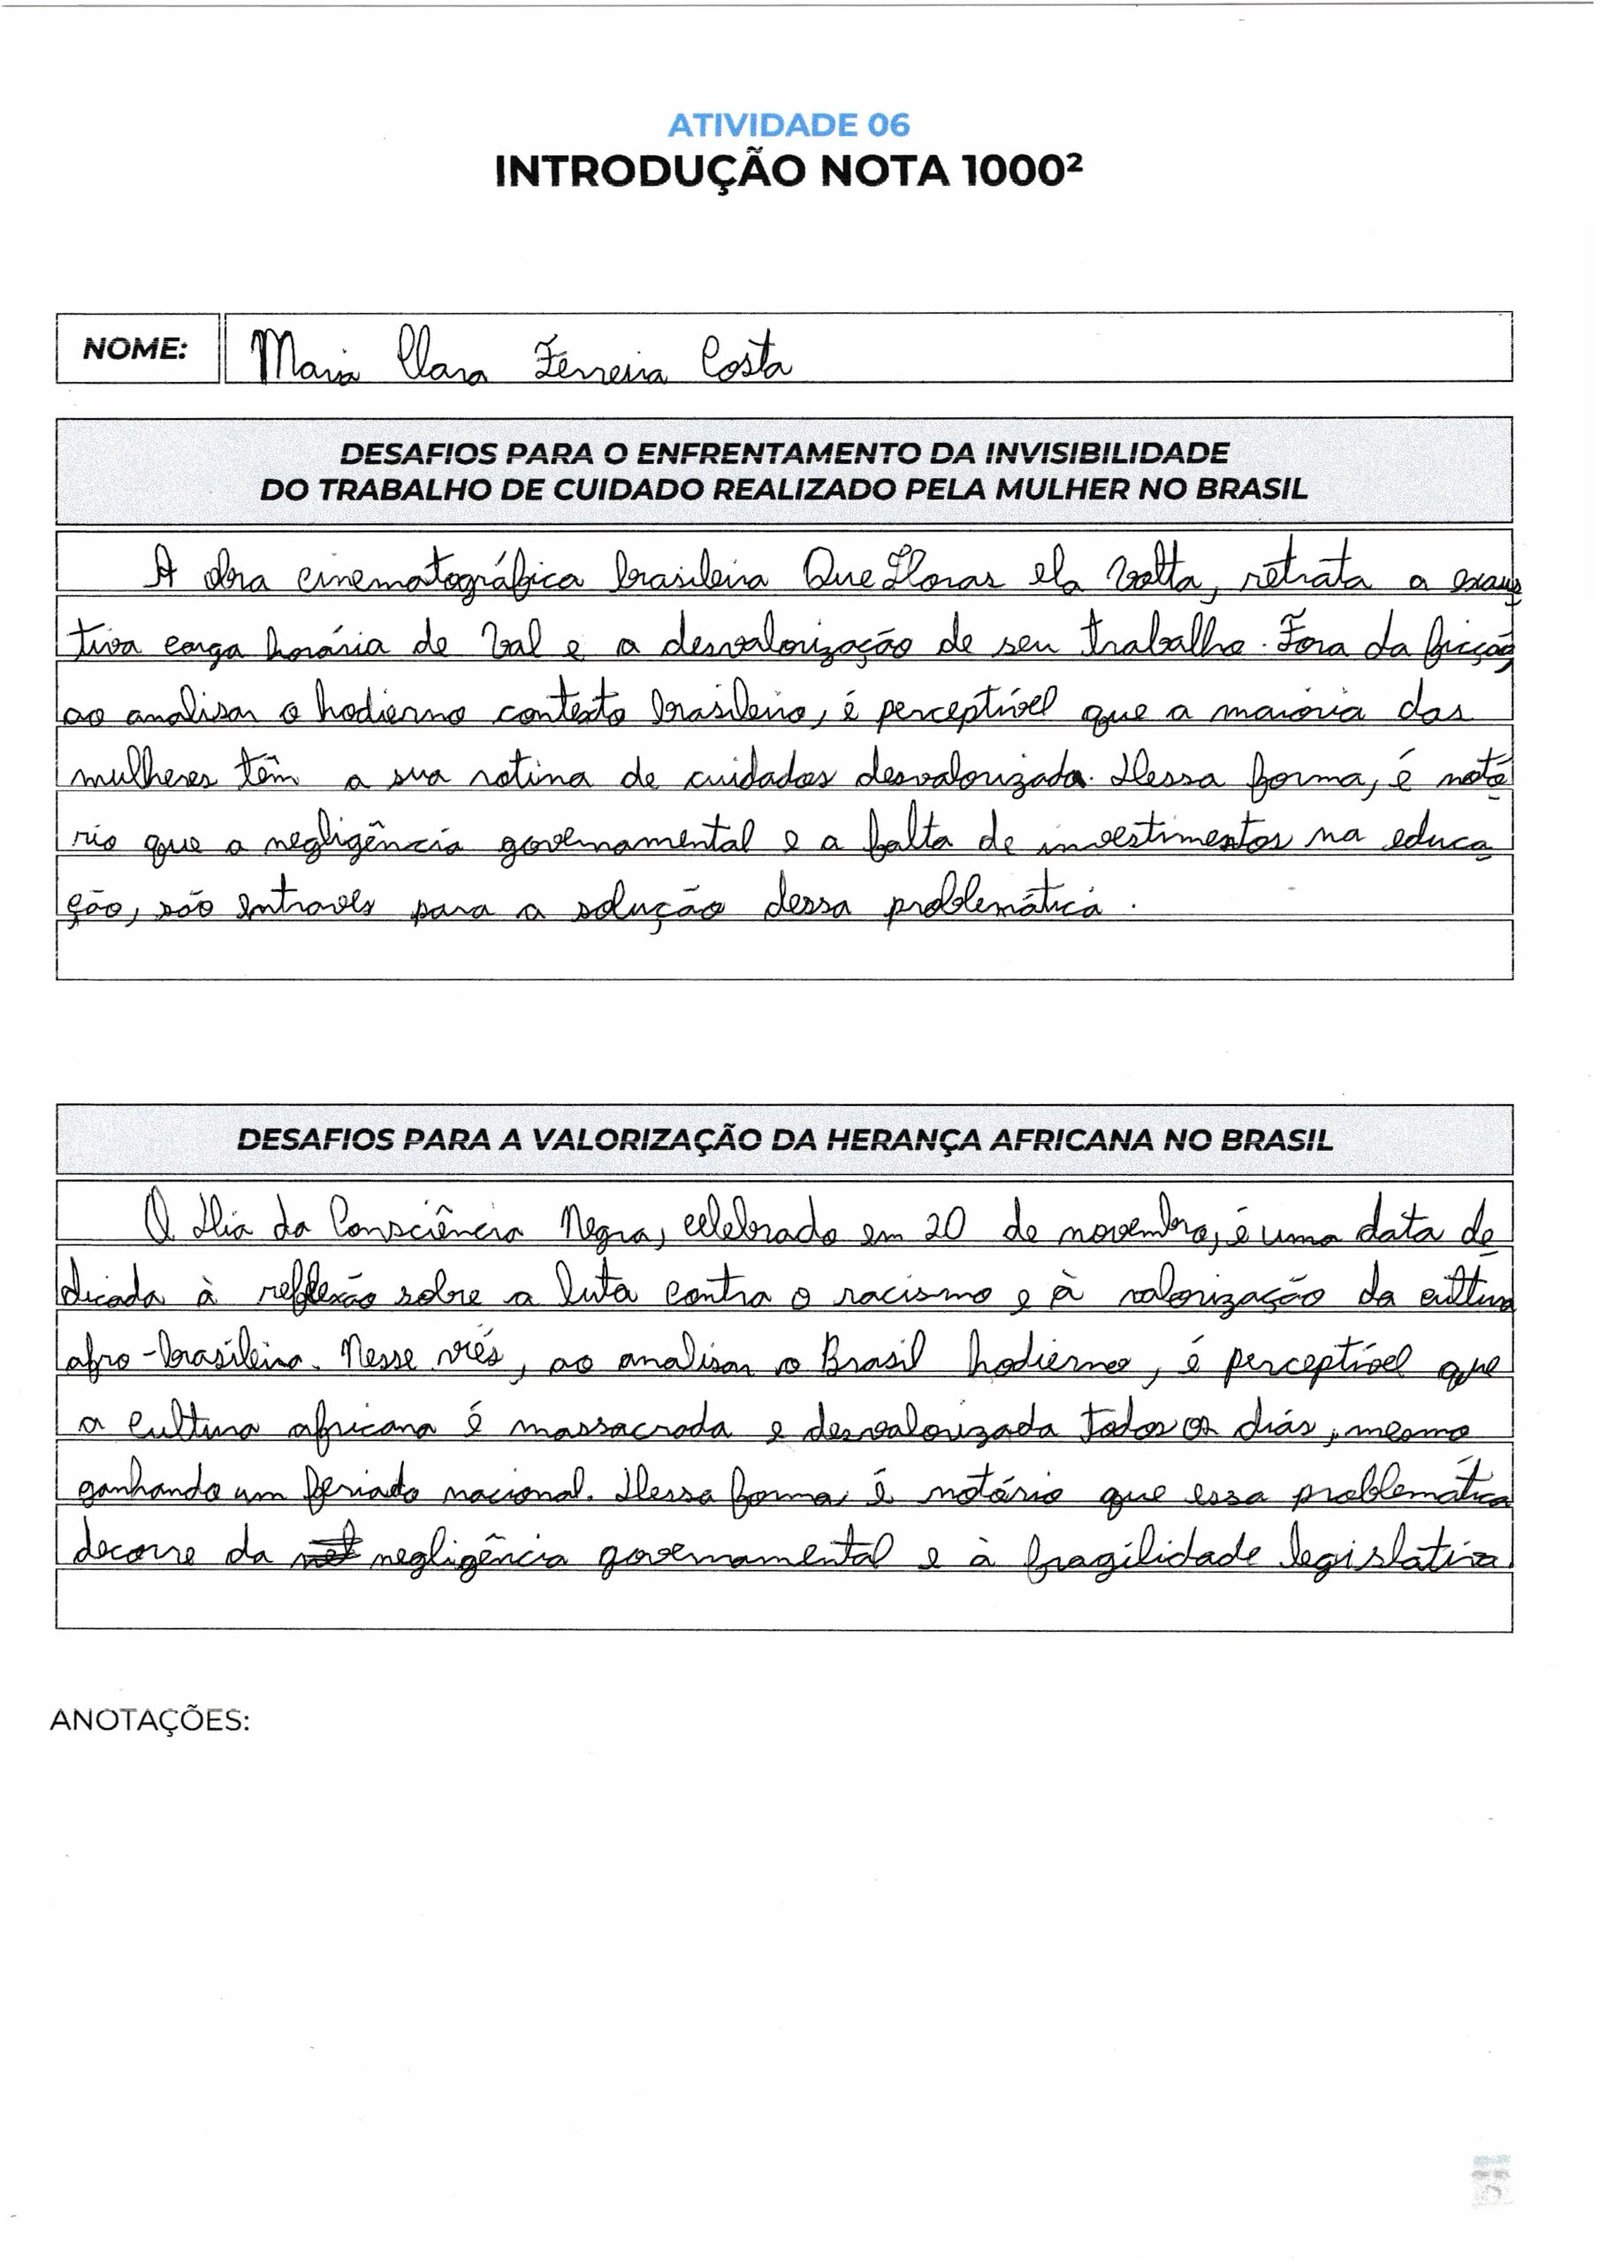 ATIVIDADE 06
INTRODUÇÃO NOTA 1000²
NOME: Maria Clara Ferreira Costa
DESAFIOS PARA O ENFRENTAMENTO DA INVISIBILIDADE
DO TRABALHO DE CUIDADO REALIZADO PELA MULHER NO BRASIL
A obra cinematográfica brasileira Que Horas ela Volta, retrata a exaus
tiva carga horária de Val e a desvalorização de seu trabalho. Fora da ficção,
ao analisar o hodierno contexto brasileiro, é perceptível que a maioria das
mulheres têm a sua rotina de cuidados desvalorizada. Dessa forma, é notó
rio que a negligência governamental e a falta de investimentos na educa
ção, são entraves para a solução dessa problemática.
DESAFIOS PARA A VALORIZAÇÃO DA HERANÇA AFRICANA NO BRASIL
O Dia da Consciência Negra, celebrado em 20 de novembro, é uma data de
dicada à reflexão sobre a luta contra o racismo e à valorização da cultura
afro-brasileira. Nesse viés, ao analisar o Brasil hodierno, é perceptível que
a cultura africana é massacrada e desvalorizada todos os diás, mesmo
ganhando um feriado nacional. Dessa forma, é notório que essa problemática
decorre da negligência governamental e à fragilidade legislativa.
ANOTAÇÕES: